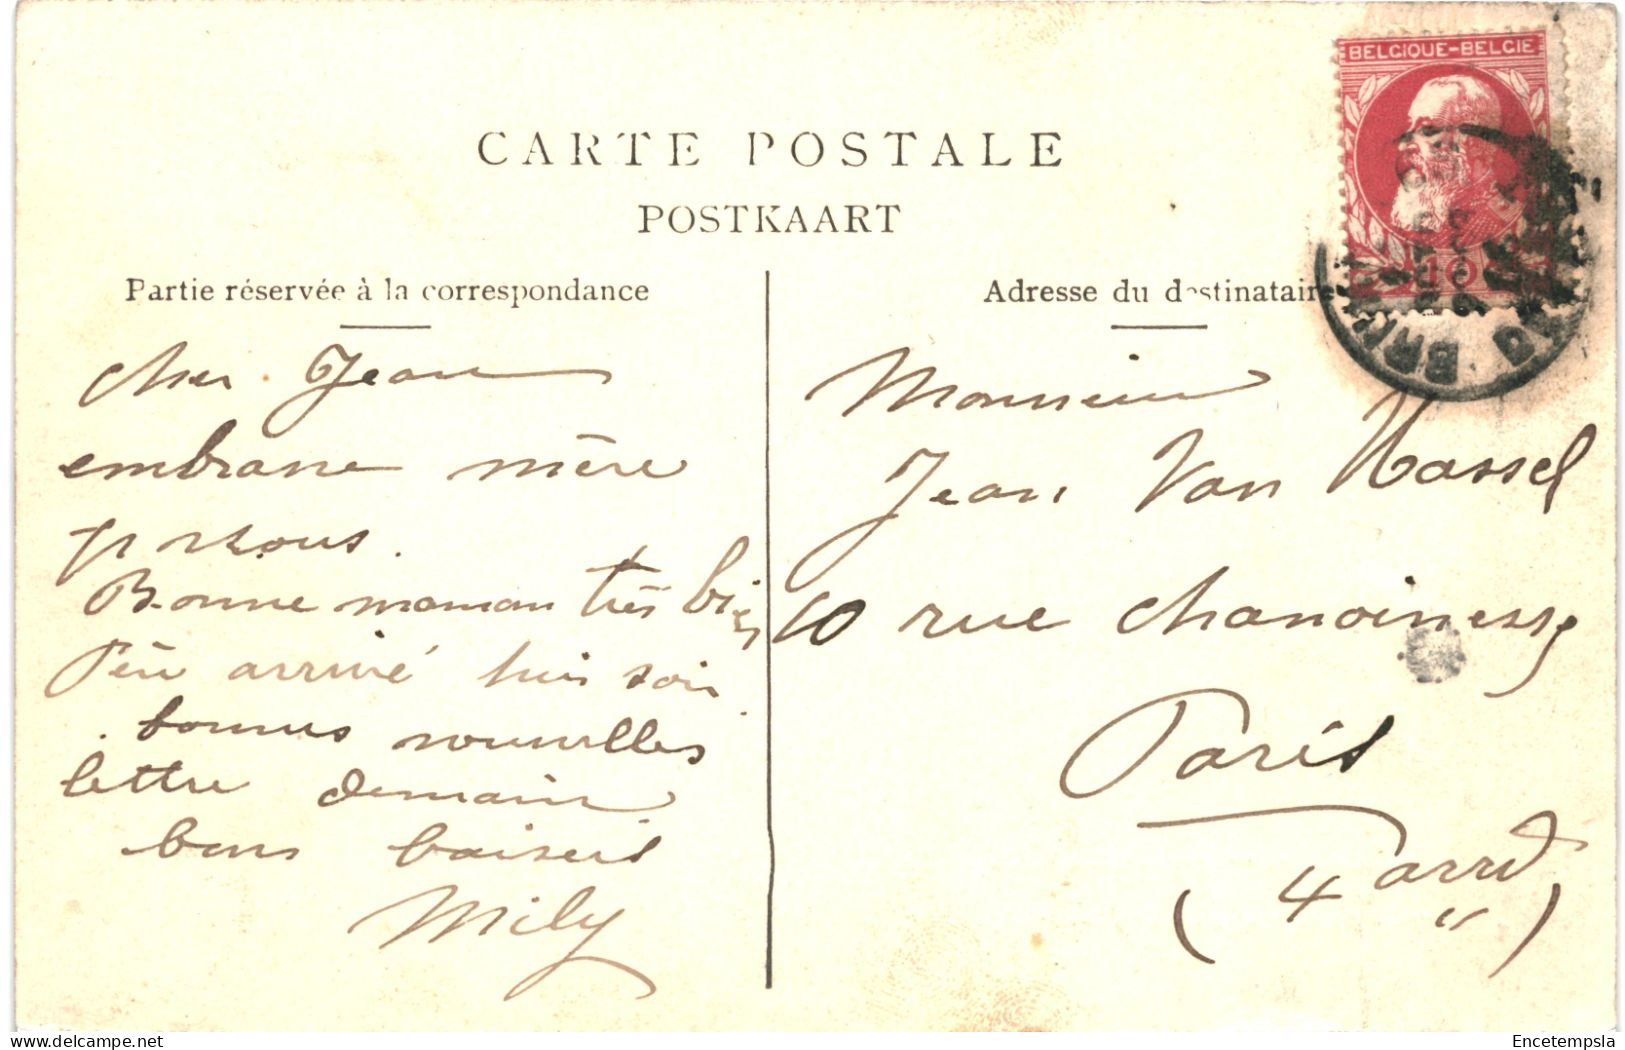 CARTE POSTALE
POSTKAART
Partie réservée à la correspondance
Adresse du destinataire
BELGIQUE-BELGIE
10
cher Jean
embrasse mère
pr nous.
Bonne maman très bien
Père arrivé hier soir
bonnes nouvelles
lettre demain
bons baisers
Mily
Monsieur
Jean Van Hassel
10 rue chanoinesse
Paris
(4 arrd)
Encetempsla